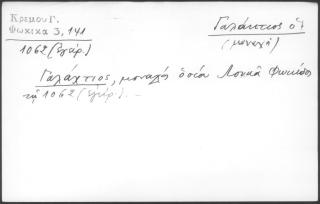 Κρέμου Γ.
Φωκικα 3, 141
1062 (ἐγάρ.)
Γαλάκτιος ὁ
(μοναχὴ)
Γαλάκτιος, μοναχὴ ὁσία Λουκᾶ Φωκίδος
τῇ 1062 (ἐγάρ.) —